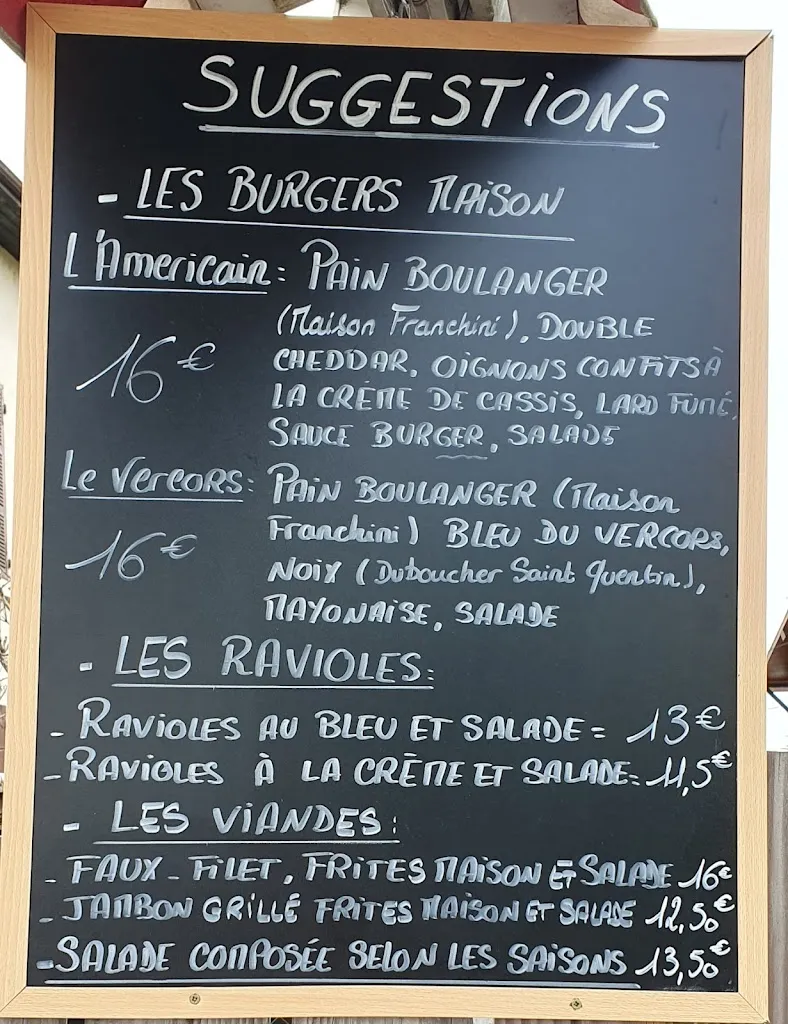 SUGGESTIONS
- LES BURGERS MAISON
L'Americain: PAIN BOULANGER
(Maison Franchini), DOUBLE
16€ CHEDDAR, OIGNONS CONFITS À
LA CRÈME DE CASSIS, LARD FUMÉ,
SAUCE BURGER, SALADE
Le Vercors: PAIN BOULANGER (Maison
Franchini) BLEU DU VERCORS,
16€ NOIX (Duboucher Saint Quentin),
MAYONAISE, SALADE
- LES RAVIOLES:
- RAVIOLES AU BLEU ET SALADE = 13€
- RAVIOLES À LA CRÈME ET SALADE = 11,5€
- LES VIANDES:
- FAUX-FILET, FRITES MAISON ET SALADE 16€
- JAMBON GRILLÉ FRITES MAISON ET SALADE 12,50€
- SALADE COMPOSÉE SELON LES SAISONS 13,50€